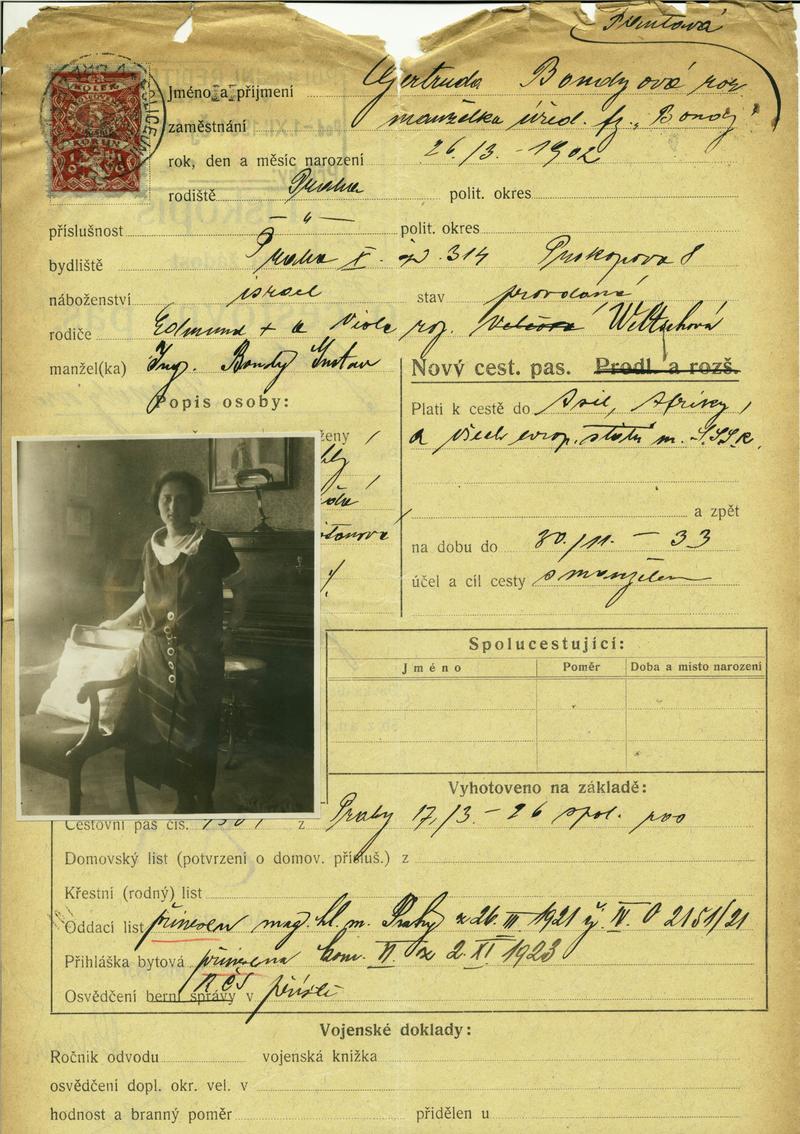 Jméno a příjmení Gertruda Bondyová roz
zaměstnání manželka úřed. fy. „Bondy"
rok, den a měsíc narození 26./3. - 1902
rodiště Praha polit. okres
příslušnost — " — polit. okres
bydliště Praha X. čp. 314 Prokopova 8
náboženství israel stav provdaná
rodiče Edmund + a Viola roz. Weltschová
manžel(ka) Ing. Bondy Gustav
Nový cest. pas. Prodl. a rozš.
Popis osoby:
Platí k cestě do Asie, Afriky,
ženy
a všech evrop. států m. S.S.S.R.
a zpět
na dobu do 30./11. - 33
účel a cíl cesty s manželem
Spolucestující:
Jméno Poměr Doba a místo narození
Vyhotoveno na základě:
Cestovní pas čís. z Prahy 17./3. - 26
Domovský list (potvrzení o domov. přísluš.) z
Křestní (rodný) list
Oddací list přinesen mag. hl. m. Prahy z 26. III 1921 čj. IV. O 2151/21
Přihláška bytová přinesena kom. VI. z 2. XI 1923
RČS
Osvědčení berní správy v příště
Vojenské doklady:
Ročník odvodu vojenská knížka
osvědčení dopl. okr. vel. v
hodnost a branný poměr přidělen u